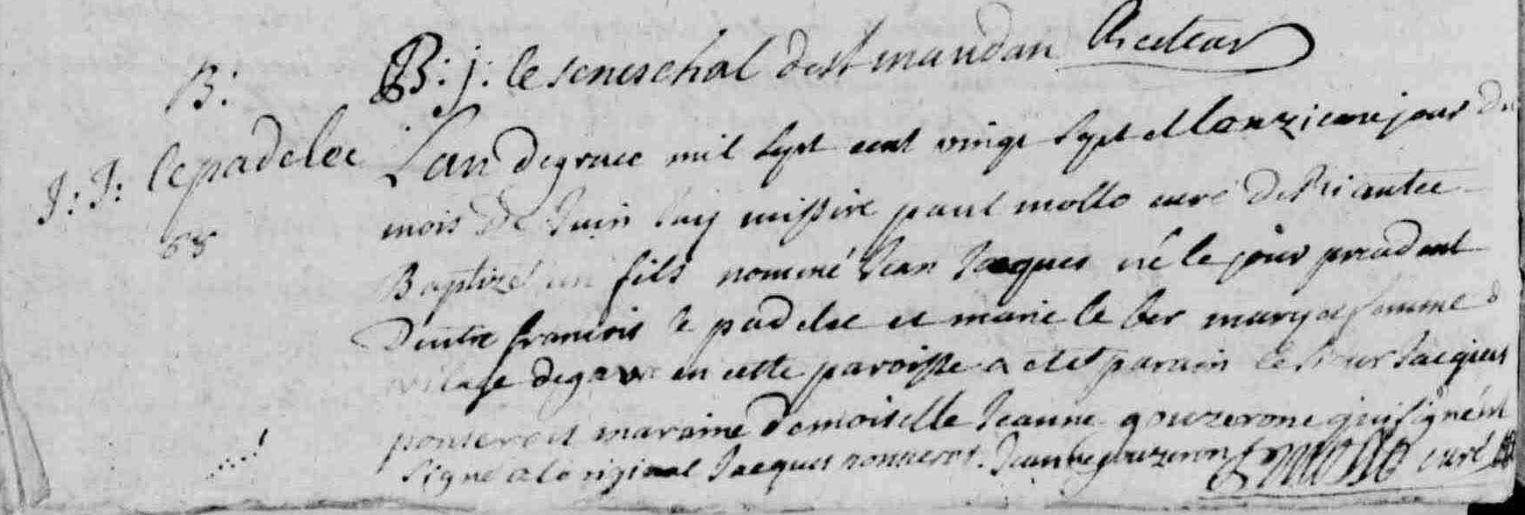 B: j: le seneschal de st maudan Recteur
B:
J: J: le padelec
L'an de grace mil sept cent vingt sept et l'onzieme jour du
mois de Juin J'ay missire paul mollo curé de Riantec
Baptizé un fils nommé Jean Jacques né le jour precedent
D'entre francois le padelec et marie le ber mary et femme d
village de gavr en cette paroisse a eté parain le sieur Jacques
et maraine Demoiselle Jeanne gouzerone qui signent
signé a l'original Jacques Jeanne gouzeron P mollo curé